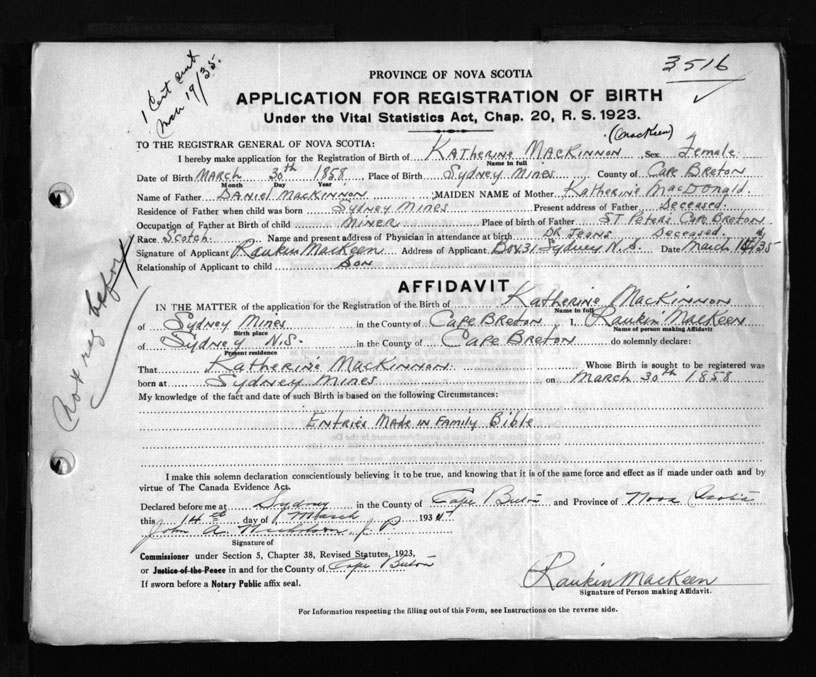 1 Cert sent
Nov 19/35.
3516
PROVINCE OF NOVA SCOTIA
APPLICATION FOR REGISTRATION OF BIRTH
Under the Vital Statistics Act, Chap. 20, R. S. 1923.
(MacKeen)
TO THE REGISTRAR GENERAL OF NOVA SCOTIA:
I hereby make application for the Registration of Birth of Katherine MacKinnon Sex Female
Name in full
Date of Birth March 30th 1858 Place of Birth Sydney Mines County of Cape Breton
Month Day Year
Name of Father Daniel MacKinnon MAIDEN NAME of Mother Katherine MacDonald
Residence of Father when child was born Sydney Mines Present address of Father Deceased
Occupation of Father at Birth of child Miner Place of Birth of Father St Peters Cape Breton
Race Scotch Name and present address of Physician in attendance at birth Dr Jeans Deceased
Signature of Applicant Rankin MacKeen Address of Applicant Box 31 Sydney N.S. Date March /35
Relationship of Applicant to child Son
Not reg before
AFFIDAVIT
IN THE MATTER of the application for the Registration of the Birth of Katherine MacKinnon
Name in full
of Sydney Mines in the County of Cape Breton I, Rankin MacKeen
Birth place Name of person making Affidavit
of Sydney N.S. in the County of Cape Breton do solemnly declare:
Present residence
That Katherine MacKinnon Whose Birth is sought to be registered was
born at Sydney Mines on March 30th 1858
My knowledge of the fact and date of such Birth is based on the following Circumstances:
Entries Made in Family Bible
I make this solemn declaration conscientiously believing it to be true, and knowing that it is of the same force and effect as if made under oath and by
virtue of The Canada Evidence Act.
Declared before me at Sydney in the County of Cape Breton and Province of Nova Scotia
this 14 day of March 193
John A. Nicholson J P
Signature of
Commissioner under Section 5, Chapter 38, Revised Statutes, 1923,
or Justice of the Peace in and for the County of Cape Breton
If sworn before a Notary Public affix seal.
Rankin MacKeen
Signature of Person making Affidavit.
For Information respecting the filling out of this Form, see Instructions on the reverse side.